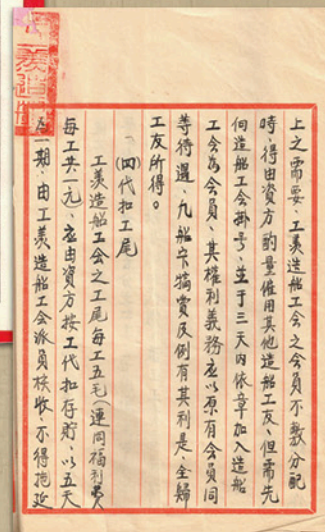 上之需要、工羡造船工会之会員不敷分配
時、得由資方酌量僱用其他造船工友、但需先
向造船工会掛号、並于三天内依章加入造船
工会為会員、其权利義務应以原有会員同
等待遇、凡船牢犒賞及例有其利是、全歸
工友所得。
(四)代扣工尾
工羡造船工会之工尾每工五毛(連同福利費
每工共一元、应由資方按工代扣存貯、以五天
為一期、由工羡造船工会派員核收、不得拖延